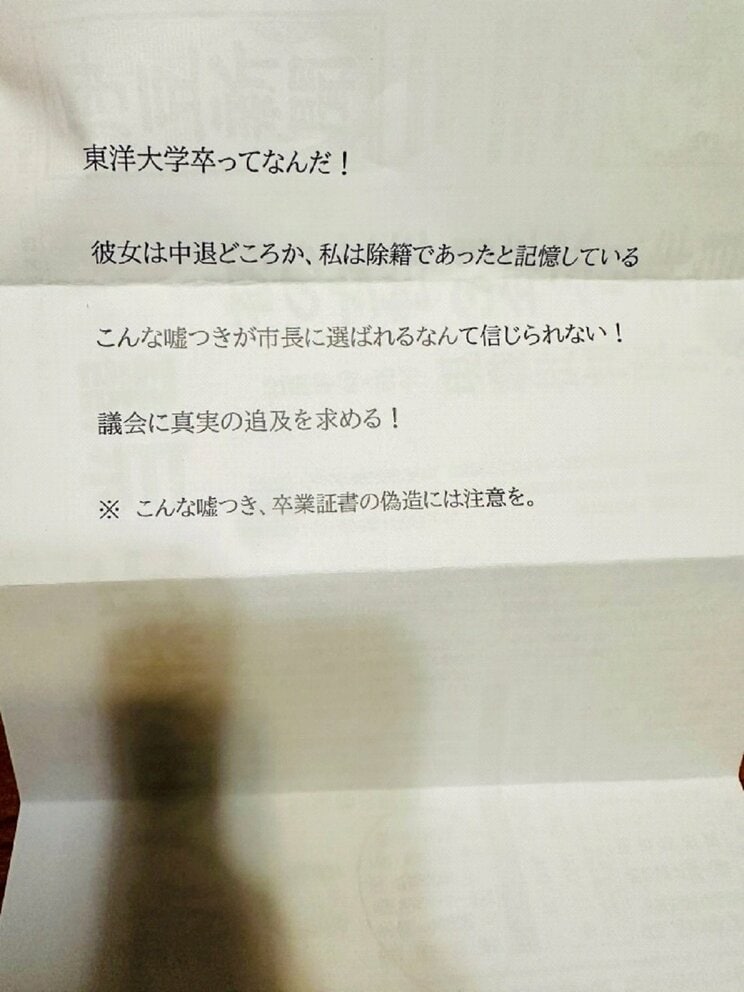 東洋大学卒ってなんだ！
彼女は中退どころか、私は除籍であったと記憶している
こんな嘘つきが市長に選ばれるなんて信じられない！
議会に真実の追及を求める！
※ こんな嘘つき、卒業証書の偽造には注意を。